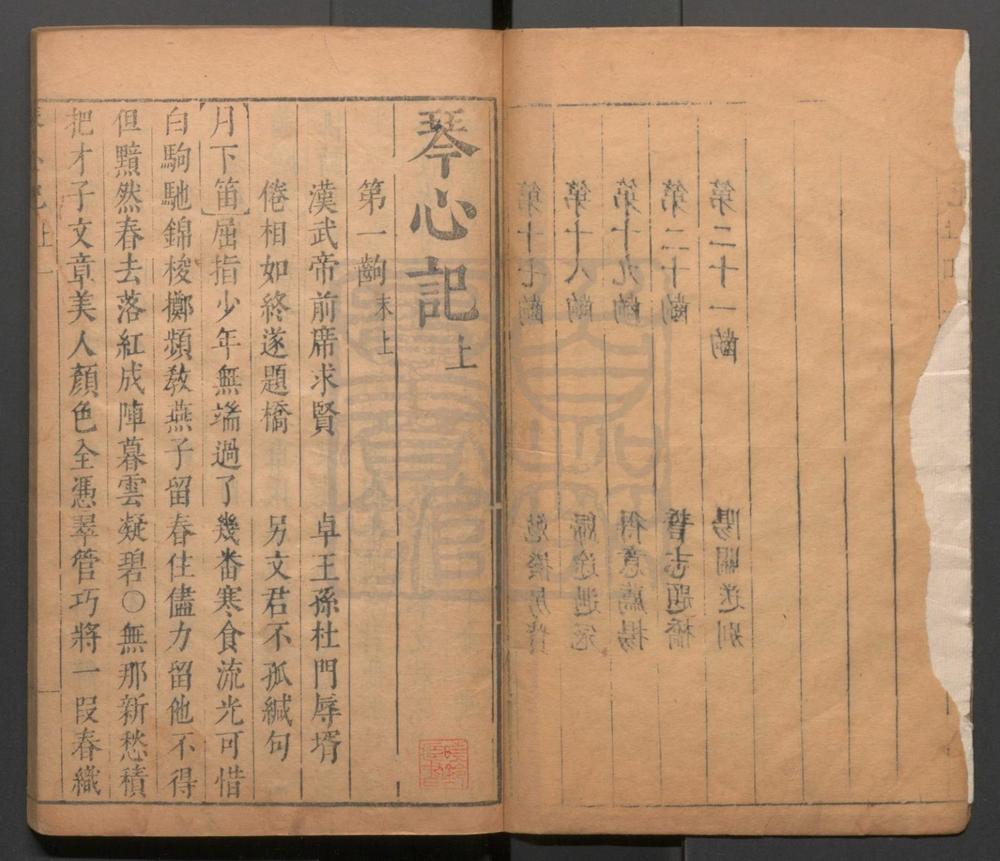 第二十一齣 陽關送別
第二十齣 誓志題橋
第十九齣 得意薦揚
第十八齣 歸途遇寇
第十七齣
琴心記上
第一齣 末上
漢武帝前席求賢 卓王孫杜門辱壻
倦相如終遂題橋 另文君不孤緘句
【月下笛】屈指少年無端過了幾番寒食流光可惜
白駒馳錦梭擲頻教燕子留春住儘力留他不得
但黯然春去落紅成陣暮雲凝碧○無那新愁積
把才子文章美人顏色全憑翠管巧將一段春織